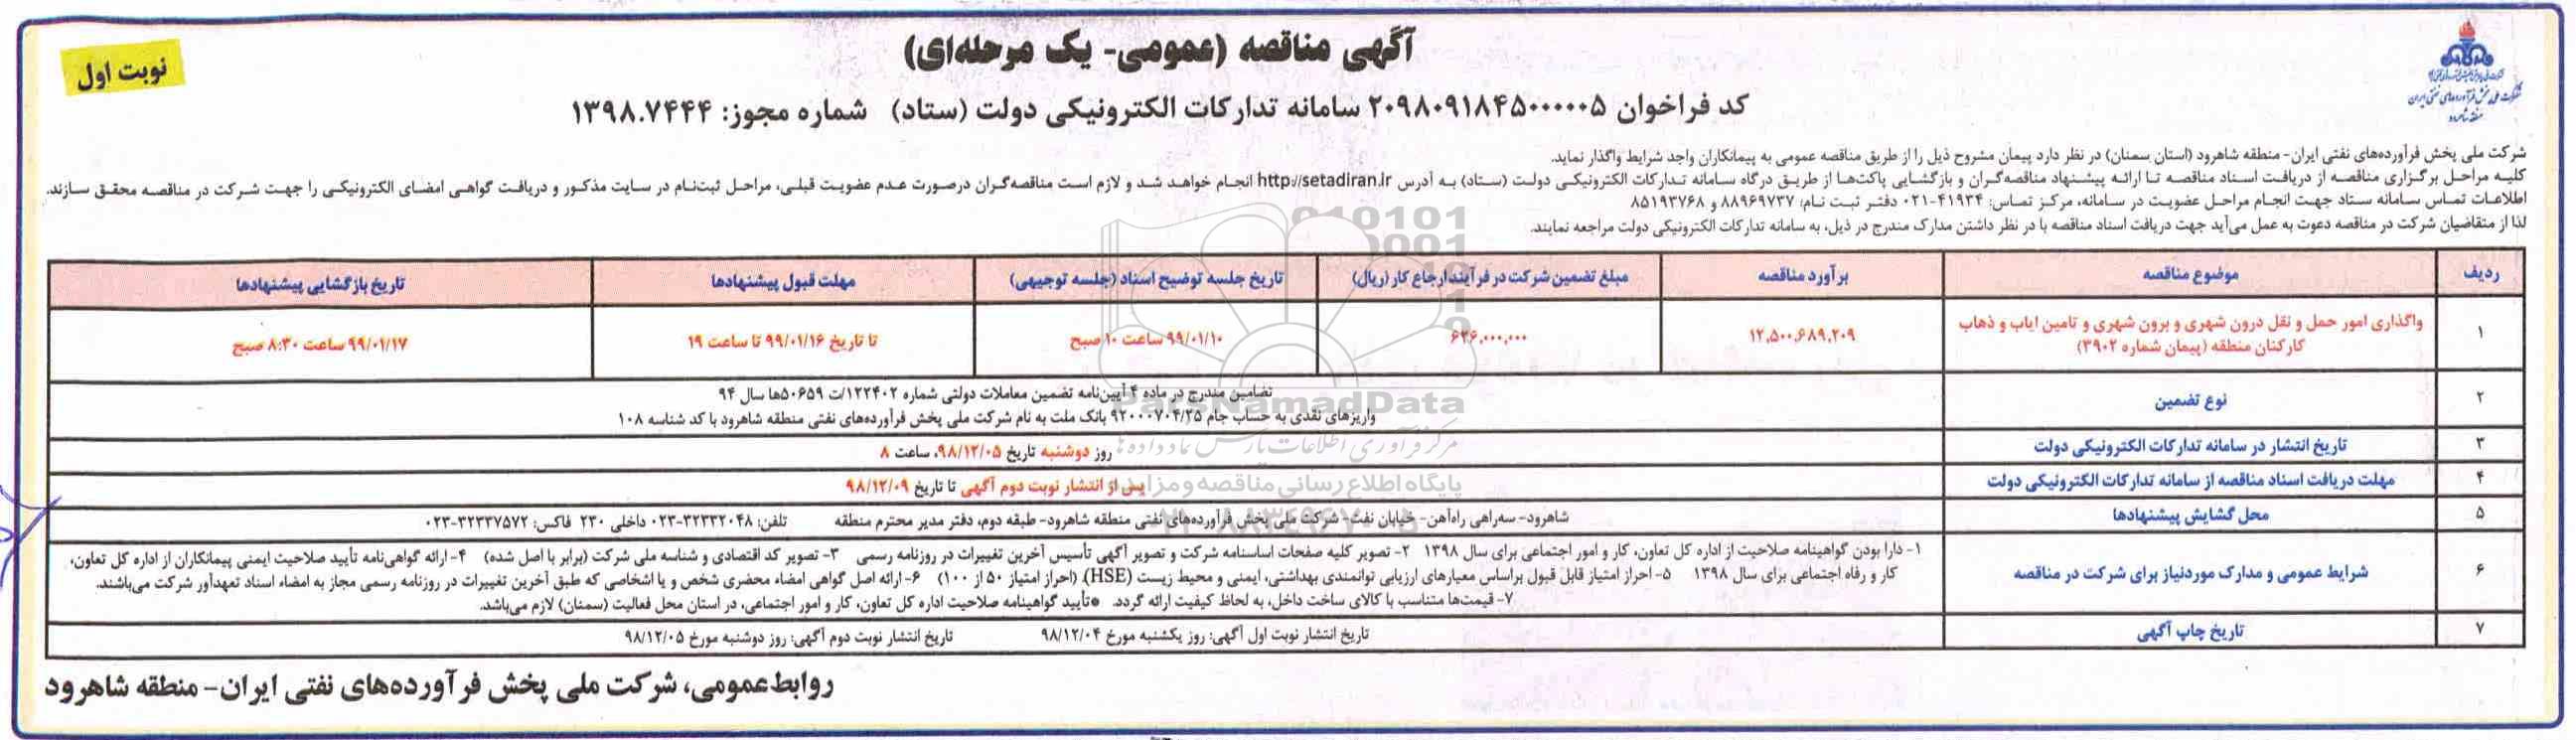 آگهی مناقصه (عمومی- یک مرحله‌ای)
نوبت اول
شرکت ملی پخش فرآورده‌های نفتی ایران
منطقه شاهرود
کد فراخوان ۲۰۹۸۰۹۱۸۴۵۰۰۰۰۰۵ سامانه تدارکات الکترونیکی دولت (ستاد) شماره مجوز: ۱۳۹۸.۷۴۴۴
شرکت ملی پخش فرآورده‌های نفتی ایران- منطقه شاهرود (استان سمنان) در نظر دارد پیمان مشروح ذیل را از طریق مناقصه عمومی به پیمانکاران واجد شرایط واگذار نماید.
کلیه مراحل برگزاری مناقصه از دریافت اسناد مناقصه تا ارائه پیشنهاد مناقصه‌گران و بازگشایی پاکت‌ها از طریق درگاه سامانه تدارکات الکترونیکی دولت (ستاد) به آدرس http://setadiran.ir انجام خواهد شد و لازم است مناقصه‌گران درصورت عدم عضویت قبلی، مراحل ثبت‌نام در سایت مذکور و دریافت گواهی امضای الکترونیکی را جهت شرکت در مناقصه محقق سازند.
اطلاعات تماس سامانه ستاد جهت انجام مراحل عضویت در سامانه، مرکز تماس: ۴۱۹۳۴-۰۲۱ دفتر ثبت نام: ۸۸۹۶۹۷۳۷ و ۸۵۱۹۳۷۶۸
لذا از متقاضیان شرکت در مناقصه دعوت به عمل می‌آید جهت دریافت اسناد مناقصه با در نظر داشتن مدارک مندرج در ذیل، به سامانه تدارکات الکترونیکی دولت مراجعه نمایند.
ردیف موضوع مناقصه برآورد مناقصه مبلغ تضمین شرکت در فرآیند ارجاع کار (ریال) تاریخ جلسه توضیح اسناد (جلسه توجیهی) مهلت قبول پیشنهادها تاریخ بازگشایی پیشنهادها
۱ واگذاری امور حمل و نقل درون شهری و برون شهری و تامین ایاب و ذهاب
کارکنان منطقه (پیمان شماره ۳۹۰۲)
۱۲,۵۰۰,۶۸۹,۲۰۹ ۶۲۶,۰۰۰,۰۰۰ ۹۹/۰۱/۱۰ ساعت ۱۰ صبح تا تاریخ ۹۹/۰۱/۱۶ تا ساعت ۱۹ ۹۹/۰۱/۱۷ ساعت ۸:۳۰ صبح
۲ نوع تضمین تضامین مندرج در ماده ۴ آیین‌نامه تضمین معاملات دولتی شماره ۱۲۳۴۰۲/ت ۵۰۶۵۹ها سال ۹۴
واریزهای نقدی به حساب جام ۹۲۰۰۰۷۰۴/۳۵ بانک ملت به نام شرکت ملی پخش فرآورده‌های نفتی منطقه شاهرود با کد شناسه ۱۰۸
۳ تاریخ انتشار در سامانه تدارکات الکترونیکی دولت روز دوشنبه تاریخ ۹۸/۱۲/۰۵، ساعت ۸
۴ مهلت دریافت اسناد مناقصه از سامانه تدارکات الکترونیکی دولت پس از انتشار نوبت دوم آگهی تا تاریخ ۹۸/۱۲/۰۹
۵ محل گشایش پیشنهادها شاهرود- سه‌راهی راه‌آهن- خیابان نفت- شرکت ملی پخش فرآورده‌های نفتی منطقه شاهرود- طبقه دوم، دفتر مدیر محترم منطقه تلفن: ۳۲۳۳۲۰۴۸-۰۲۳ داخلی ۲۳۰ فاکس: ۳۲۳۳۷۵۷۲-۰۲۳
۶ شرایط عمومی و مدارک موردنیاز برای شرکت در مناقصه ۱- دارا بودن گواهینامه صلاحیت از اداره کل تعاون، کار و امور اجتماعی برای سال ۱۳۹۸ ۲- تصویر کلیه صفحات اساسنامه شرکت و تصویر آگهی تأسیس آخرین تغییرات در روزنامه رسمی ۳- تصویر کد اقتصادی و شناسه ملی شرکت (برابر با اصل شده) ۴- ارائه گواهی‌نامه تأیید صلاحیت ایمنی پیمانکاران از اداره کل تعاون،
کار و رفاه اجتماعی برای سال ۱۳۹۸ ۵- احراز امتیاز قابل قبول براساس معیارهای ارزیابی توانمندی بهداشتی، ایمنی و محیط زیست (HSE). (احراز امتیاز ۵۰ از ۱۰۰) ۶- ارائه اصل گواهی امضاء محضری شخص و یا اشخاصی که طبق آخرین تغییرات در روزنامه رسمی مجاز به امضاء اسناد تعهدآور شرکت می‌باشند.
۷- قیمت‌ها متناسب با کالای ساخت داخل، به لحاظ کیفیت ارائه گردد. *تأیید گواهینامه صلاحیت اداره کل تعاون، کار و امور اجتماعی، در استان محل فعالیت (سمنان) لازم می‌باشد.
۷ تاریخ چاپ آگهی تاریخ انتشار نوبت اول آگهی: روز یکشنبه مورخ ۹۸/۱۲/۰۴ تاریخ انتشار نوبت دوم آگهی: روز دوشنبه مورخ ۹۸/۱۲/۰۵
روابط عمومی، شرکت ملی پخش فرآورده‌های نفتی ایران- منطقه شاهرود
ParsNamadData
مرکز فرآوری اطلاعات پارس نماد داده ها
پایگاه اطلاع رسانی مناقصه و مزایده